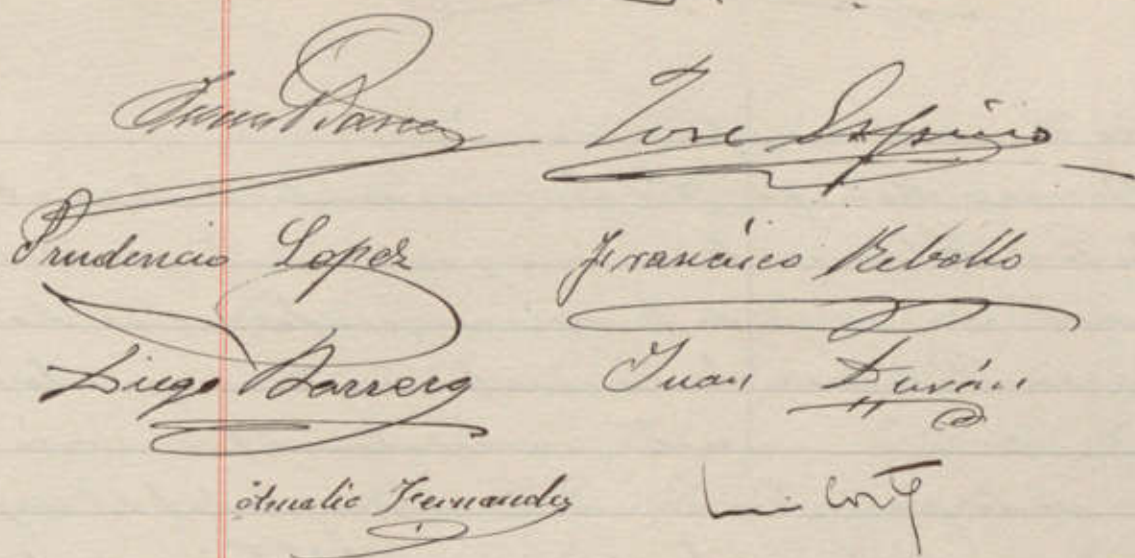 Jose Espino
Prudencio Lopez Francisco Rebollo
Diego Barrera Juan Durán
Amalio Fernandez Luis